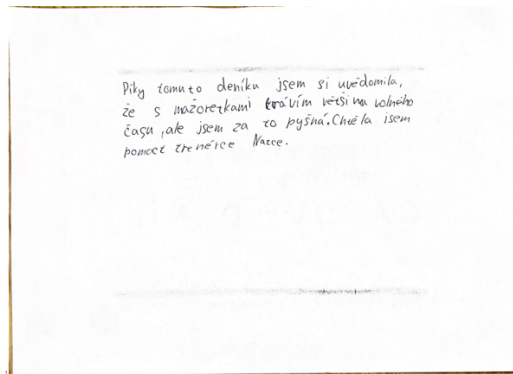 Díky tomuto deníku jsem si uvědomila,
že s mažoretkami trávím většinu volného
času, ale jsem za to pyšná. Chtěla jsem
pomoct trenérce